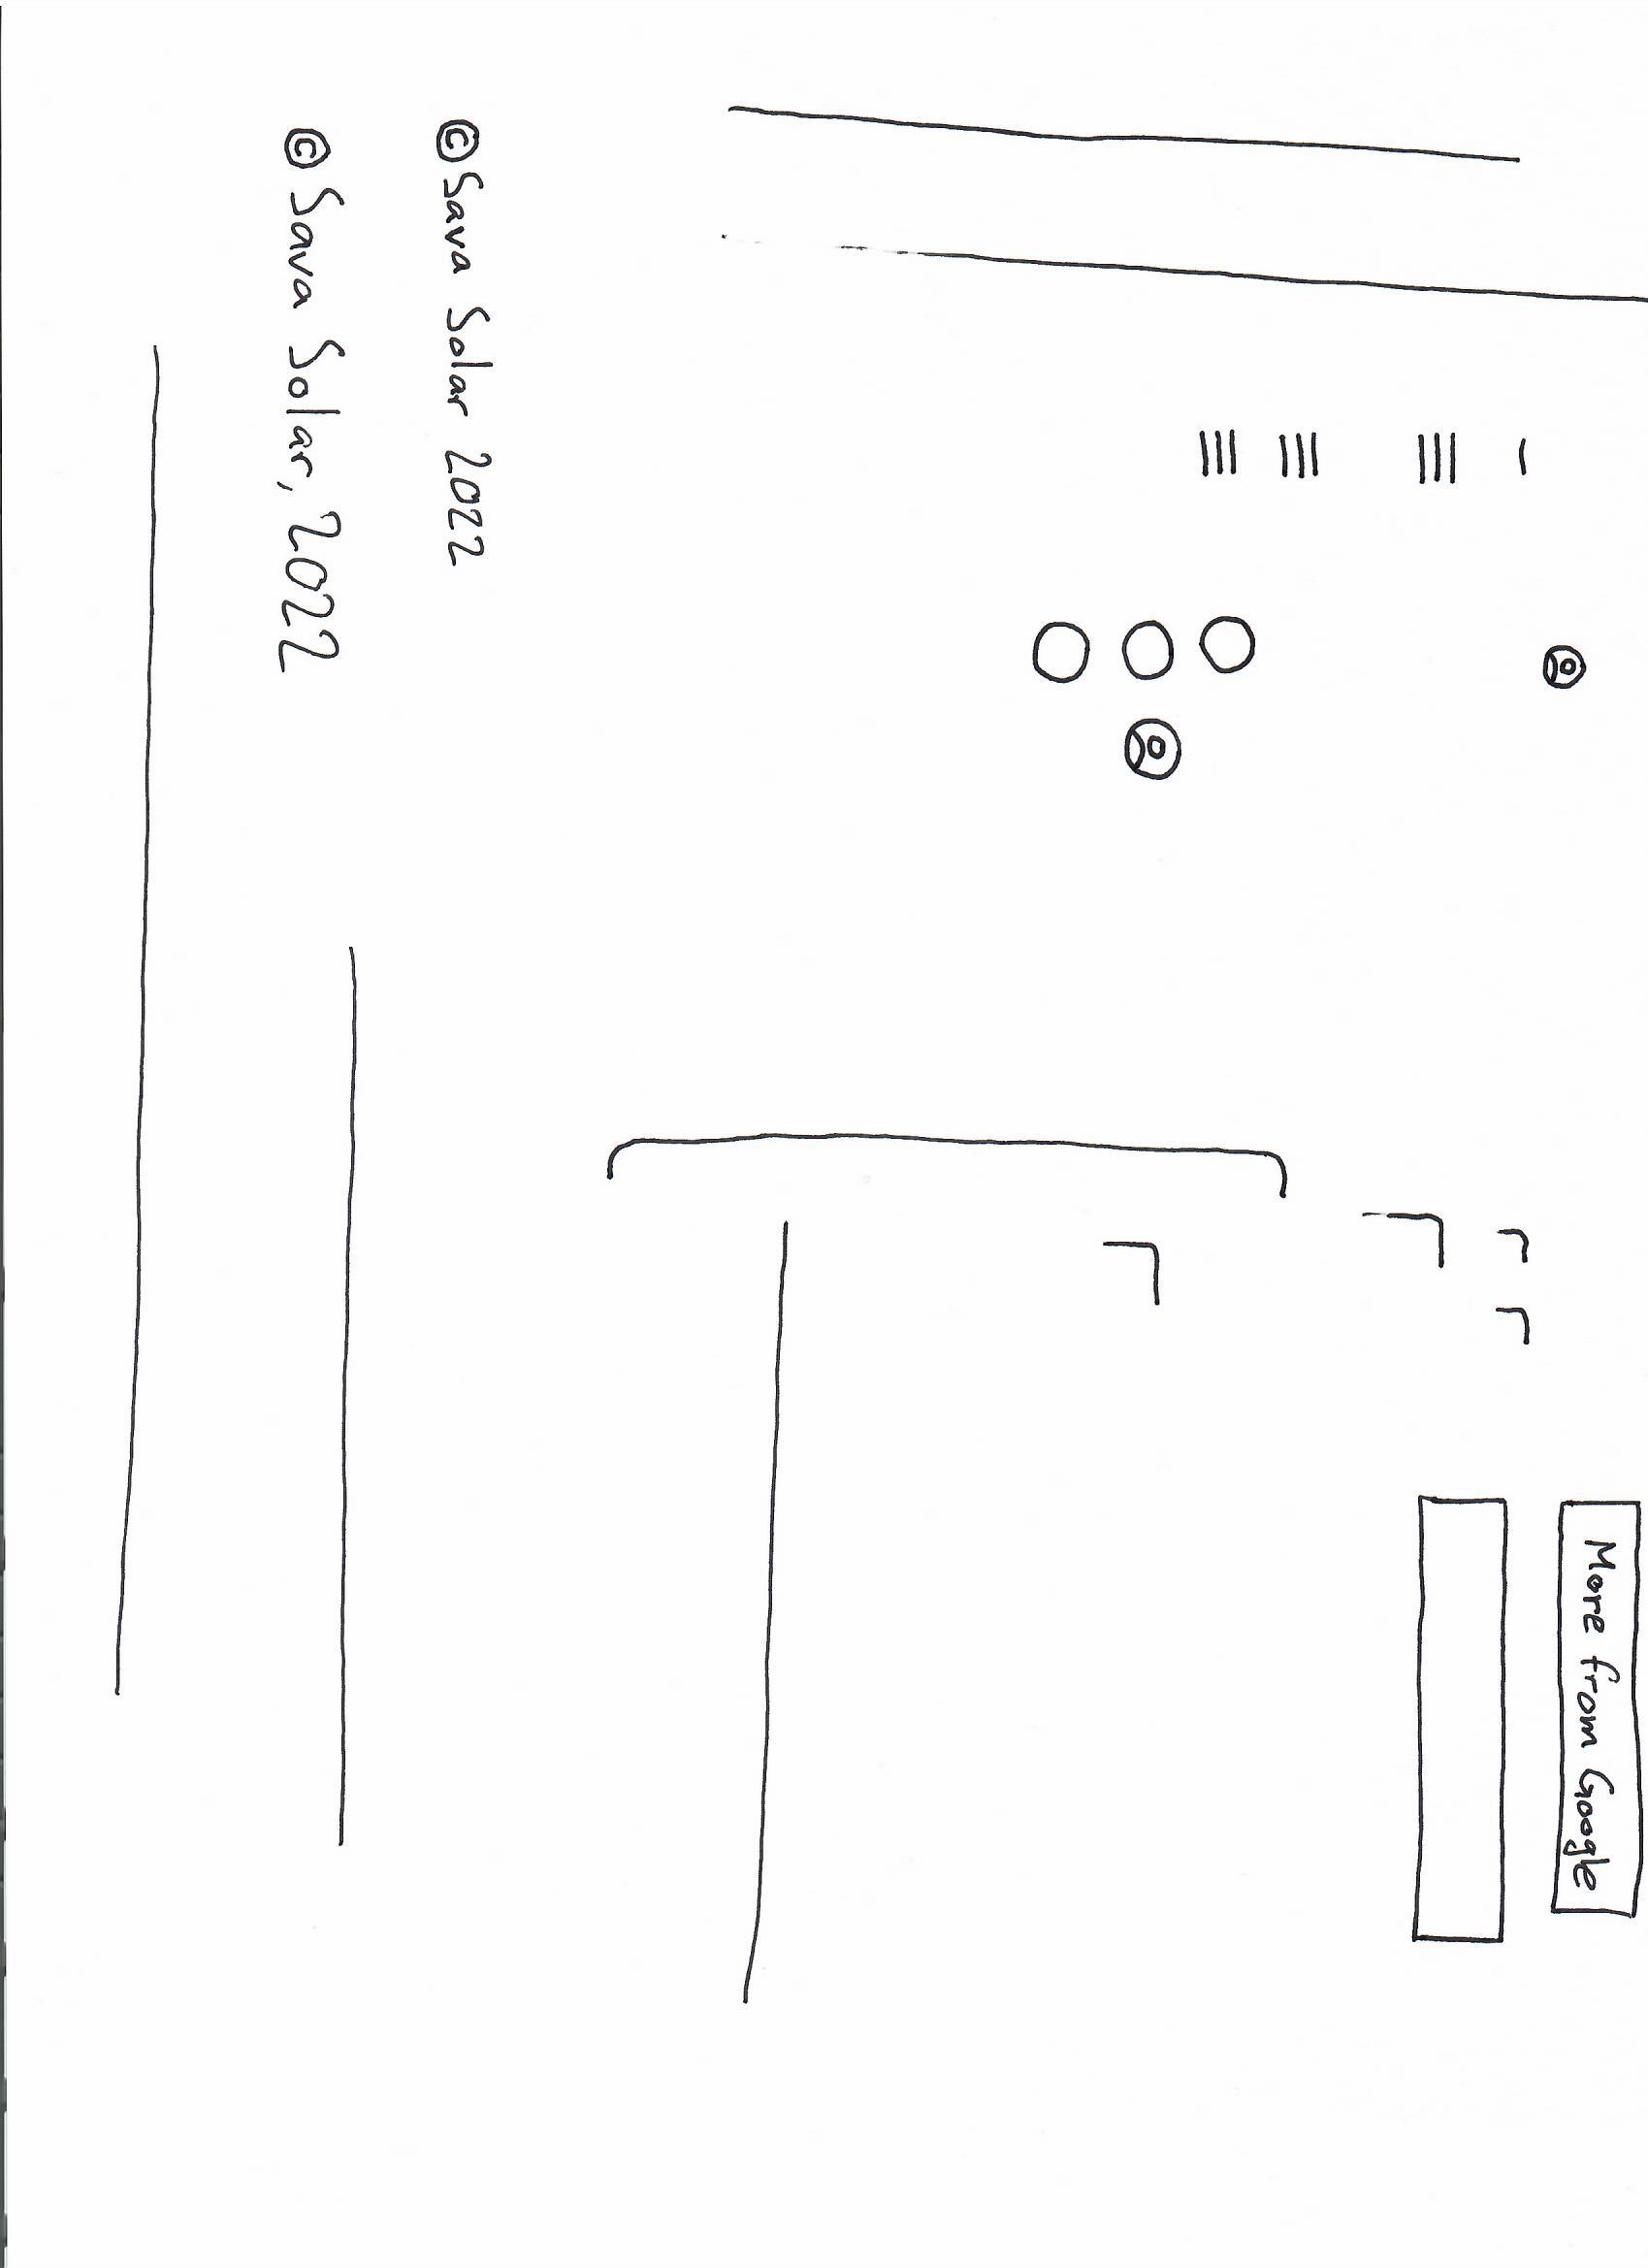 More from Google
© Sava Solar 2022
© Sava Solar, 2022